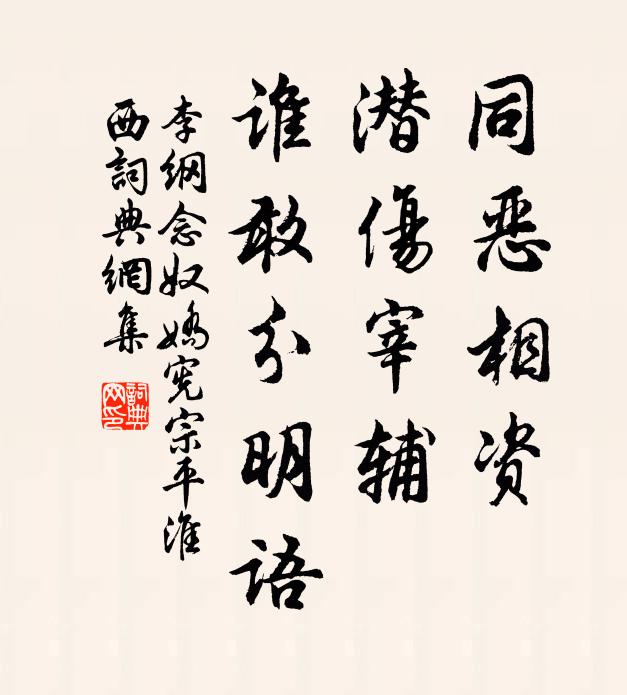 同恶相资
潜傷宰辅
谁敢分明语
李纲念奴嬌宪宗平淮
西詞典網集
詞典网印